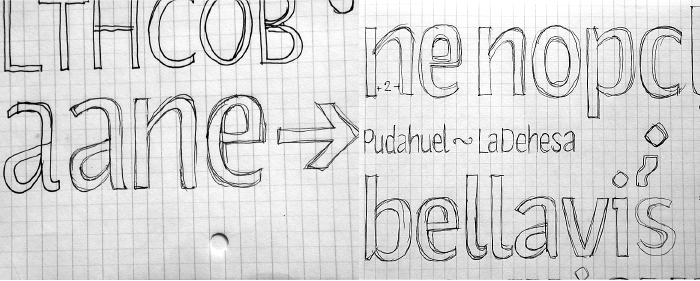 LTHCOB
aane →
ne nopc
Pudahuel ~ LaDehesa
bellavis